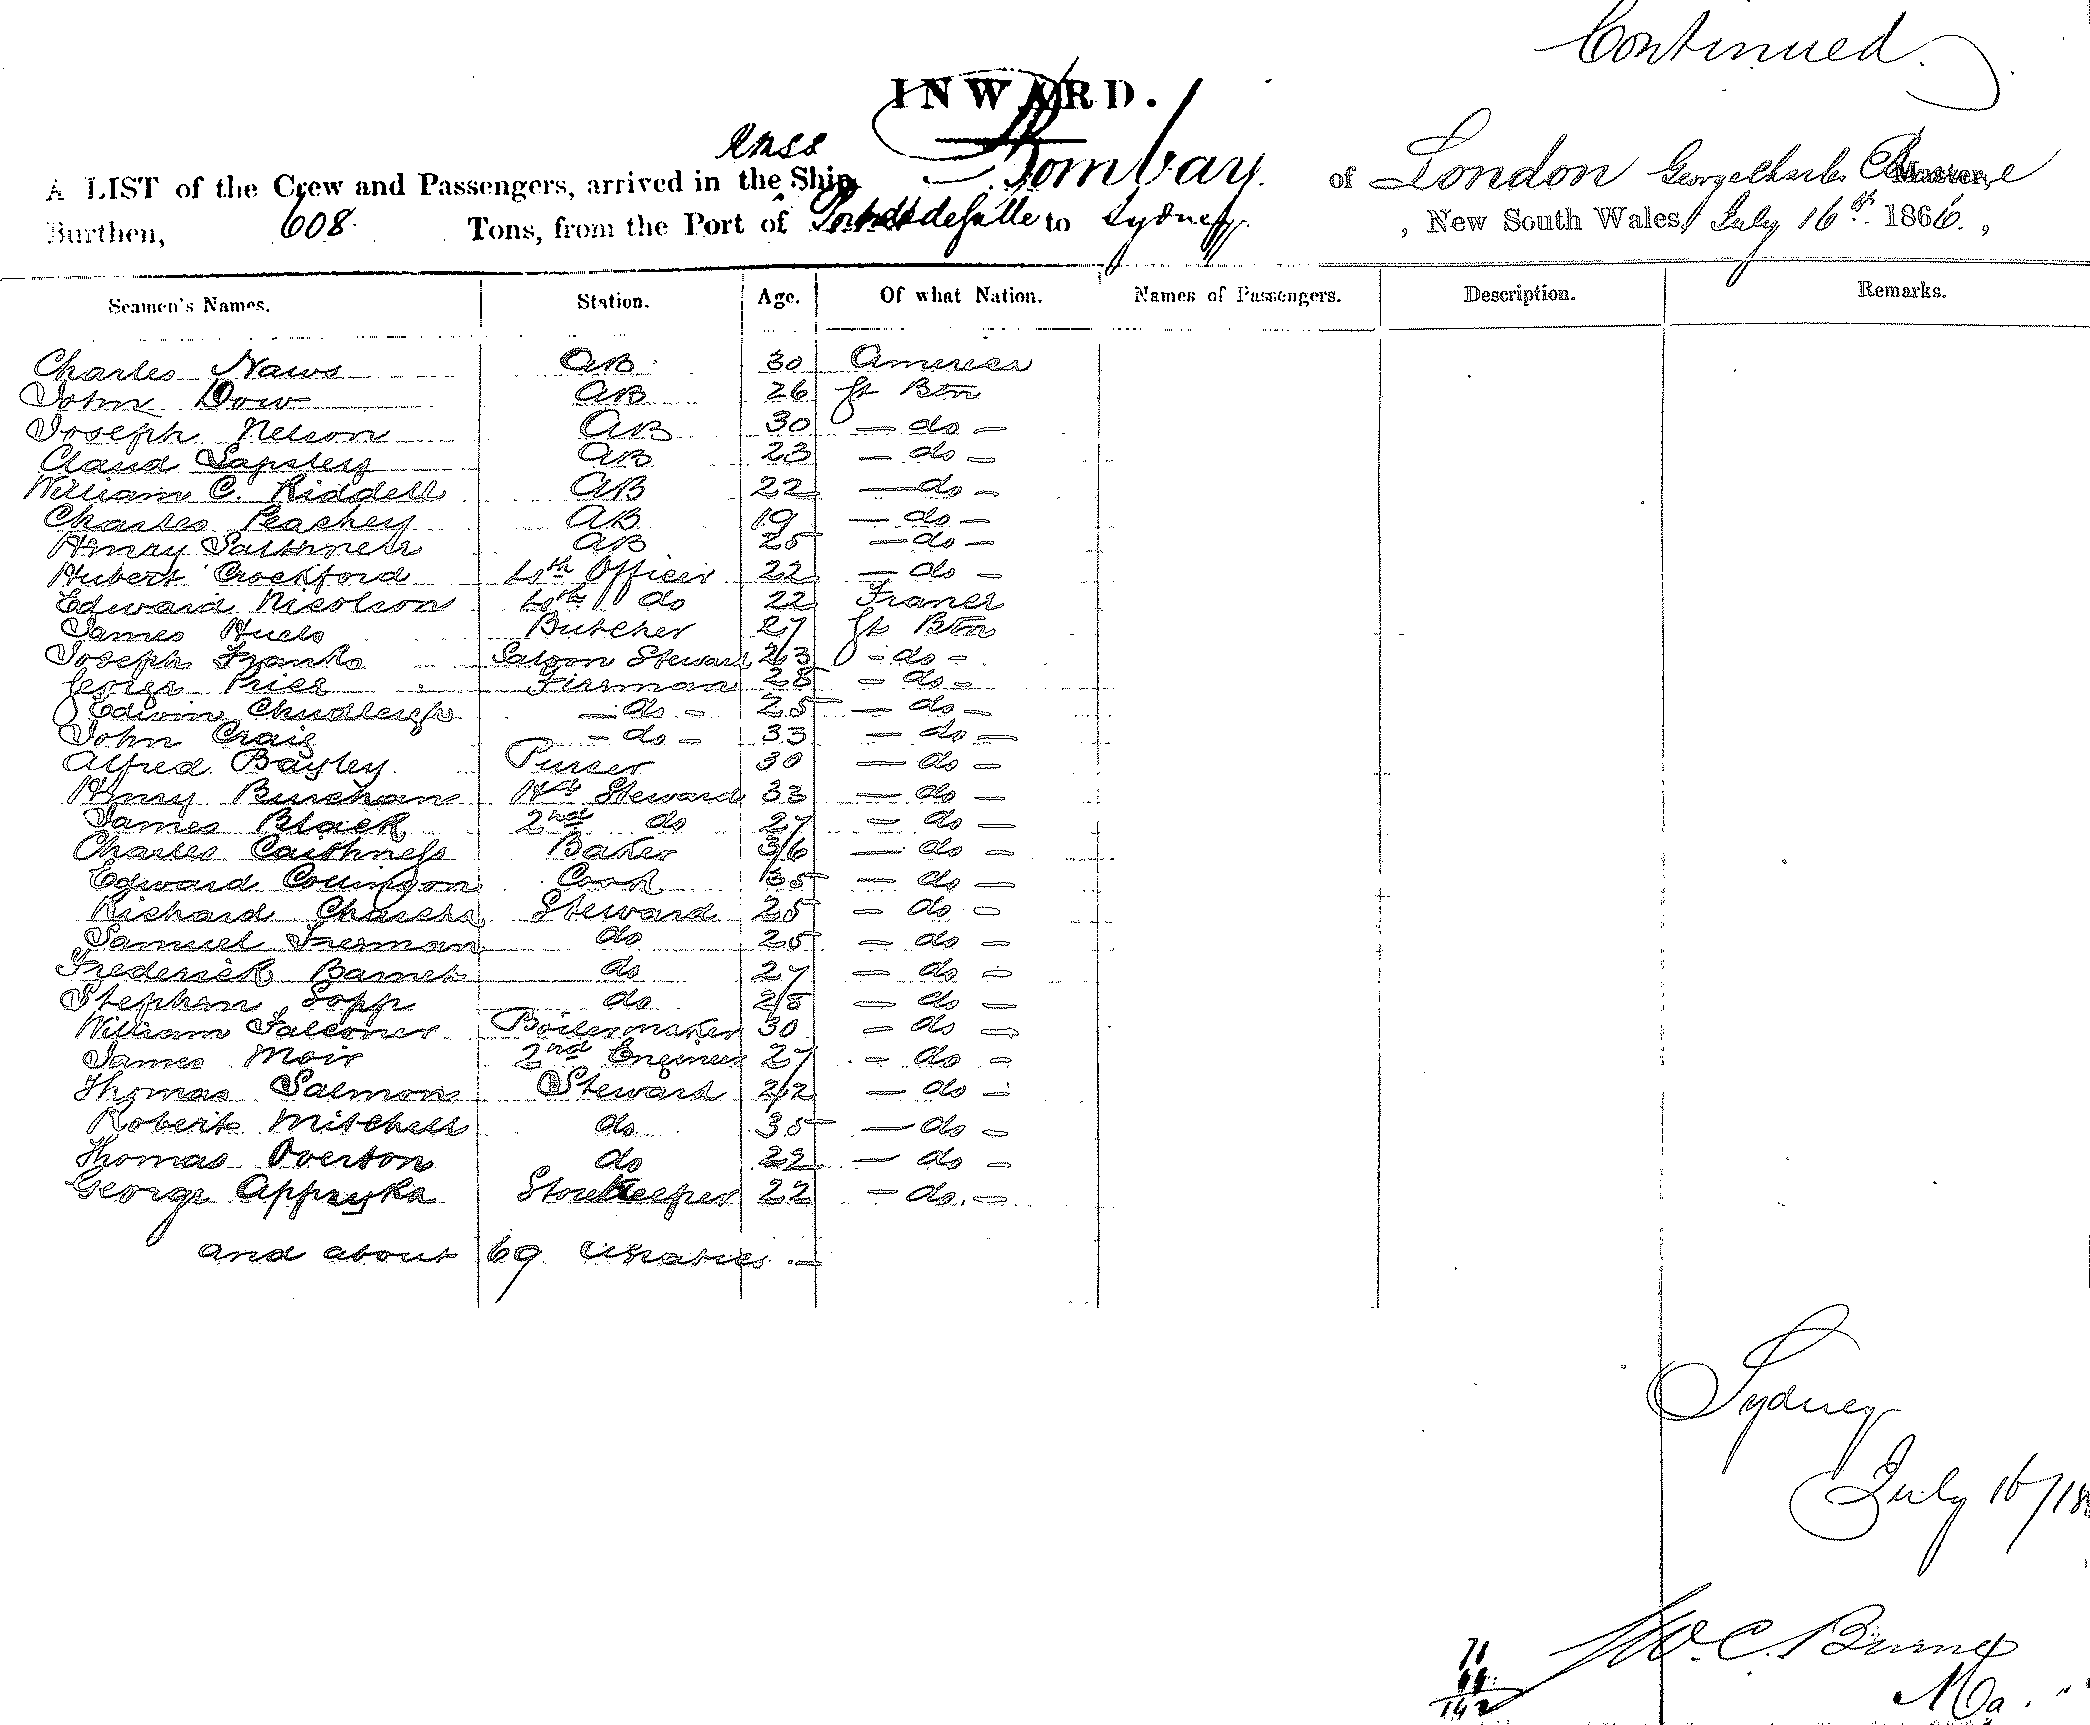 Continued
INWARD.
A LIST of the Crew and Passengers, arrived in the Ship Bombay of London George Charles Burne
Burthen, 608 Tons, from the Port of Pointdegalle to Sydney, New South Wales, July 16th 1866.,
Seamen's Names. Station. Age. Of what Nation. Names of Passengers. Description. Remarks.
Charles Naws AB 30 America
John Dow AB 26 Gt Btn
Joseph Nelson AB 30 - do -
Claud Lapsley AB 23 - do -
William C. Riddell AB 22 - do -
Charles Peachey AB 19 - do -
Henry AB 25 - do -
Hubert Crockford 4th Officer 22 - do -
Edward Nicolson do 22 France
James Butcher 27 Gt Btn
Joseph Franks Saloon Steward 23 - do -
George Price Fireman 28 - do -
Edwin Chudleigh - do - 25 - do -
John Craig - do - 33 - do -
Alfred Bayley Purser 30 - do -
Henry Burcham Hd Steward 33 - do -
James Black 2nd do 27 - do -
Charles Caithness Baker 36 - do -
Edward Collington Cook 35 - do -
Richard Steward 25 - do -
Samuel do 25 - do -
Frederick Barnet do 27 - do -
Stephen Topp do 28 - do -
William Falconer Boilermaker 30 - do -
James Moir 2nd Engineer 27 - do -
Thomas Salmons Steward 22 - do -
Robert Mitchell do 35 - do -
Thomas Overton do 22 - do -
George Storekeeper 22 - do -
and about 69
Sydney
July 16/18
C. Burne
71